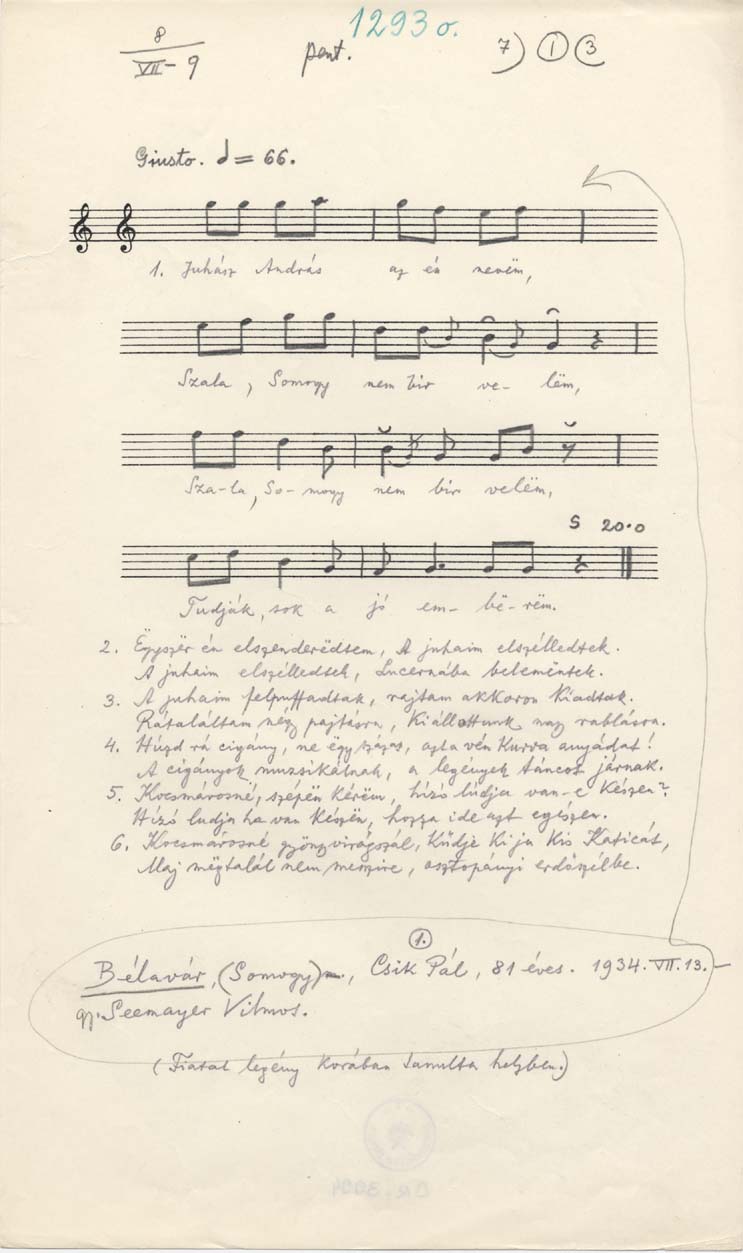 1293 o.
8
VII-9
pent.
7) 1 3
Giusto. = 66.
1. Juhász András az én nevëm,
Szala, Somogy nem bir ve- lëm,
Sza-la, So-mogy nem bir velëm,
S 20.0
Tudják, sok a jó em- bë-rëm.
2. Ëgyszër én elszenderëdtem, A juhaim elszélledtek.
A juhaim elszélledtek, Lucernába belemëntek.
3. A juhaim felpuffadtak, rajtam akkoron kiadtak.
Rátaláltam négy pajtásra, Kiállottunk nagy rablásra.
4. Húzd rá cigány, ne ëgy százas, azt a vén kurva anyádat!
A cigányok muzsikálnak, a legények táncot járnak.
5. Kocsmárosné, szépën kérëm, hízó lúdja van-e készen?
Hízó ludja ha van készën, hozza ide azt egészen.
6. Kocsmárosné gyöngyvirágszál, Küdje ki ja kis Katicát,
Maj mëgtalál nem messzire, osztopányi erdőszélbe.
1.
Bélavár, (Somogy), Csik Pál, 81 éves. 1934. VII. 13.
gy. Seemayer Vilmos.
(Fiatal legény korában tanulta helyben.)